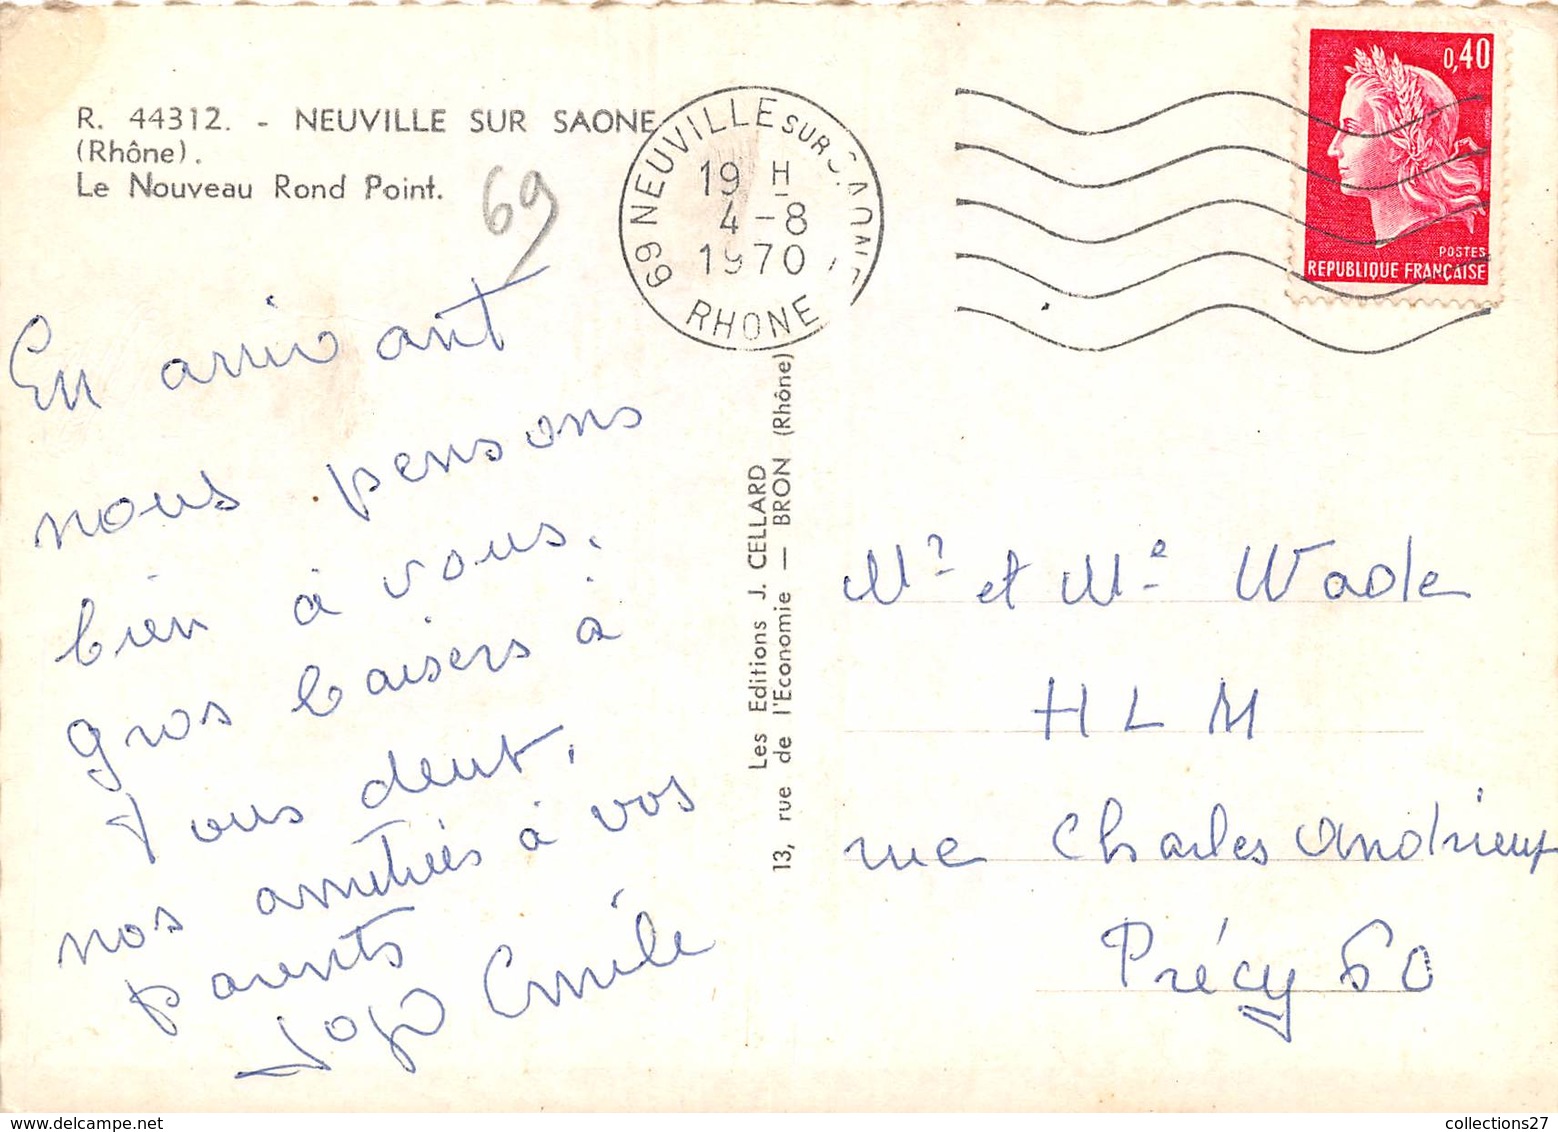 R. 44312. - NEUVILLE SUR SAONE
(Rhône).
Le Nouveau Rond Point.
69
69 NEUVILLE SUR SAONE
19 H
4-8
1970
RHONE
0,40
POSTES
REPUBLIQUE FRANÇAISE
En arrivant
nous pensons
bien à vous.
Gros baisers à
tous deux,
nos amitiés à vos
parents
Emile
Les Editions J. CELLARD
13, rue de l'Economie — BRON (Rhône)
Mr et Me Wade
HLM
rue Charles Andrieux
Précy 60
collections27